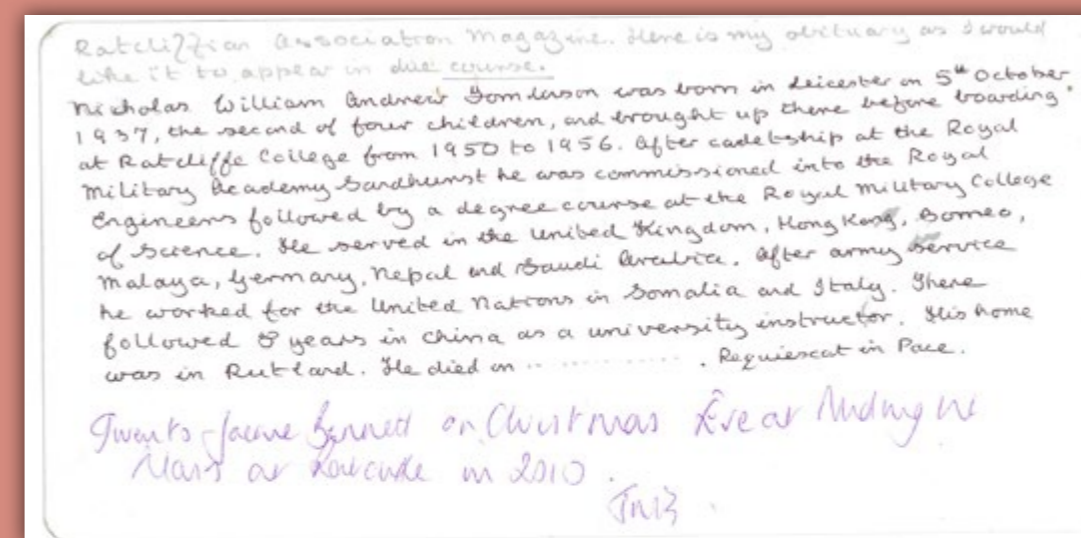 Ratcliffian Association Magazine. Here is my obituary as I would
like it to appear in due course.
Nicholas William Andrew Tomlinson was born in Leicester on 5th October
1937, the second of four children, and brought up there before boarding
at Ratcliffe College from 1950 to 1956. After cadetship at the Royal
Military Academy Sandhurst he was commissioned into the Royal
Engineers followed by a degree course at the Royal Military College
of Science. He served in the United Kingdom, Hong Kong, Borneo,
Malaya, Germany, Nepal and Saudi Arabia. After army service
he worked for the United Nations in Somalia and Italy. There
followed 8 years in China as a university instructor. His home
was in Rutland. He died on .............. . Requiescat in Pace.
Bennett on Christmas Eve at Midnight
Mass at Ratcliffe in 2010.